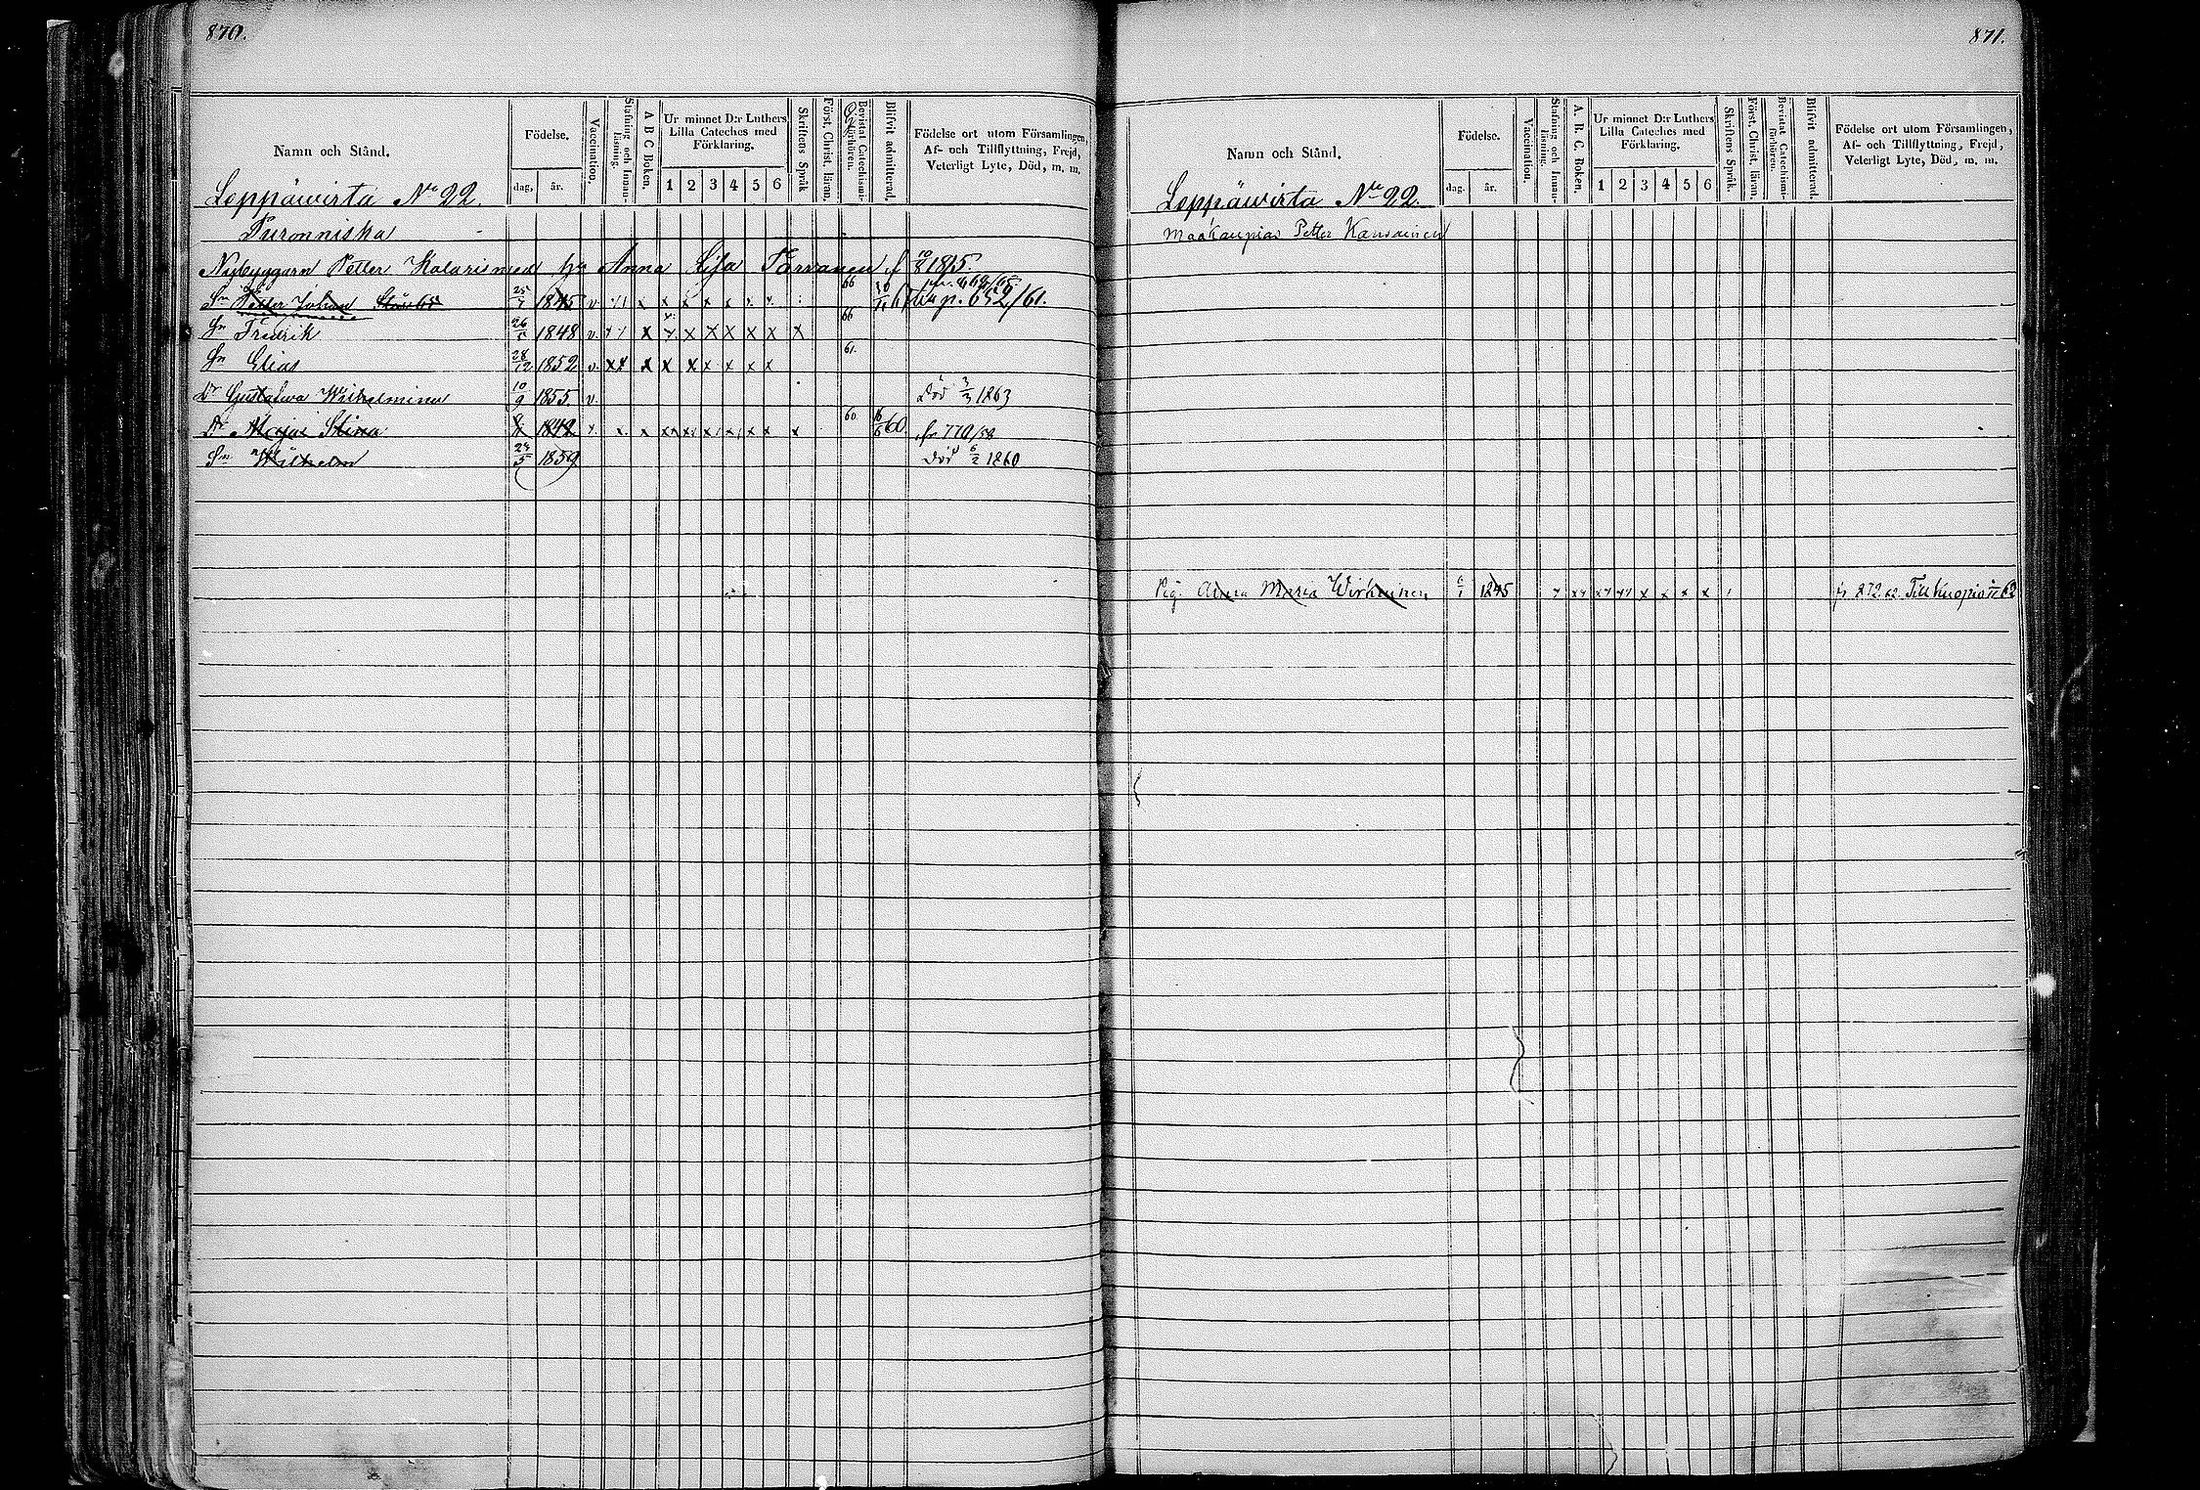 870.
Namn och Stånd.
Födelse.
dag. år.
Vaccination.
Stafning och Innanläsning.
A B C Boken.
Ur minnet D:r Luthers Lilla Cateches med Förklaring.
1 2 3 4 5 6
Skriftens Språk
Först. Christ. läran.
Bevistat Catechismiförhören.
Blifvit admitterad.
Födelse ort utom Församlingen, Af- och Tillflyttning, Frejd, Veterligt Lyte, Död, m. m.
Leppäwirta No 22.
Puronniska
Nybyggarn Petter med hu Anna Lisa f 10/8 1815.
Sn Petter Johan 25/7 1845 v x x x x x 66 652/61.
Sn Fredrik 26 1848 v. x x x x x x x 66
Sn Elias 28/12 1852 v. x x x x x x x x 61.
Dr Gustafwa Wilhelmina 10/9 1855 v. Död 3/3 1863
Dr Maja Stina 1842 x x x x x x 60. 60. fr 770/58
Sn Wilhelm 24/5 1859 Död 6/2 1860
871.
Namn och Stånd.
Födelse.
dag. år.
Vaccination.
Stafning och Innanläsning.
A. B. C. Boken.
Ur minnet D:r Luthers Lilla Cateches med Förklaring.
1 2 3 4 5 6
Skriftens Språk
Först. Christ. läran.
Bevistat Catechismiförhören.
Blifvit admitterad.
Födelse ort utom Församlingen, Af- och Tillflyttning, Frejd, Veterligt Lyte, Död, m. m.
Leppäwirta No 22.
Maakaupias Petter
Pig. Anna Maria 6/1 1845 x x x x fr 872.62. Till Kuopio 62